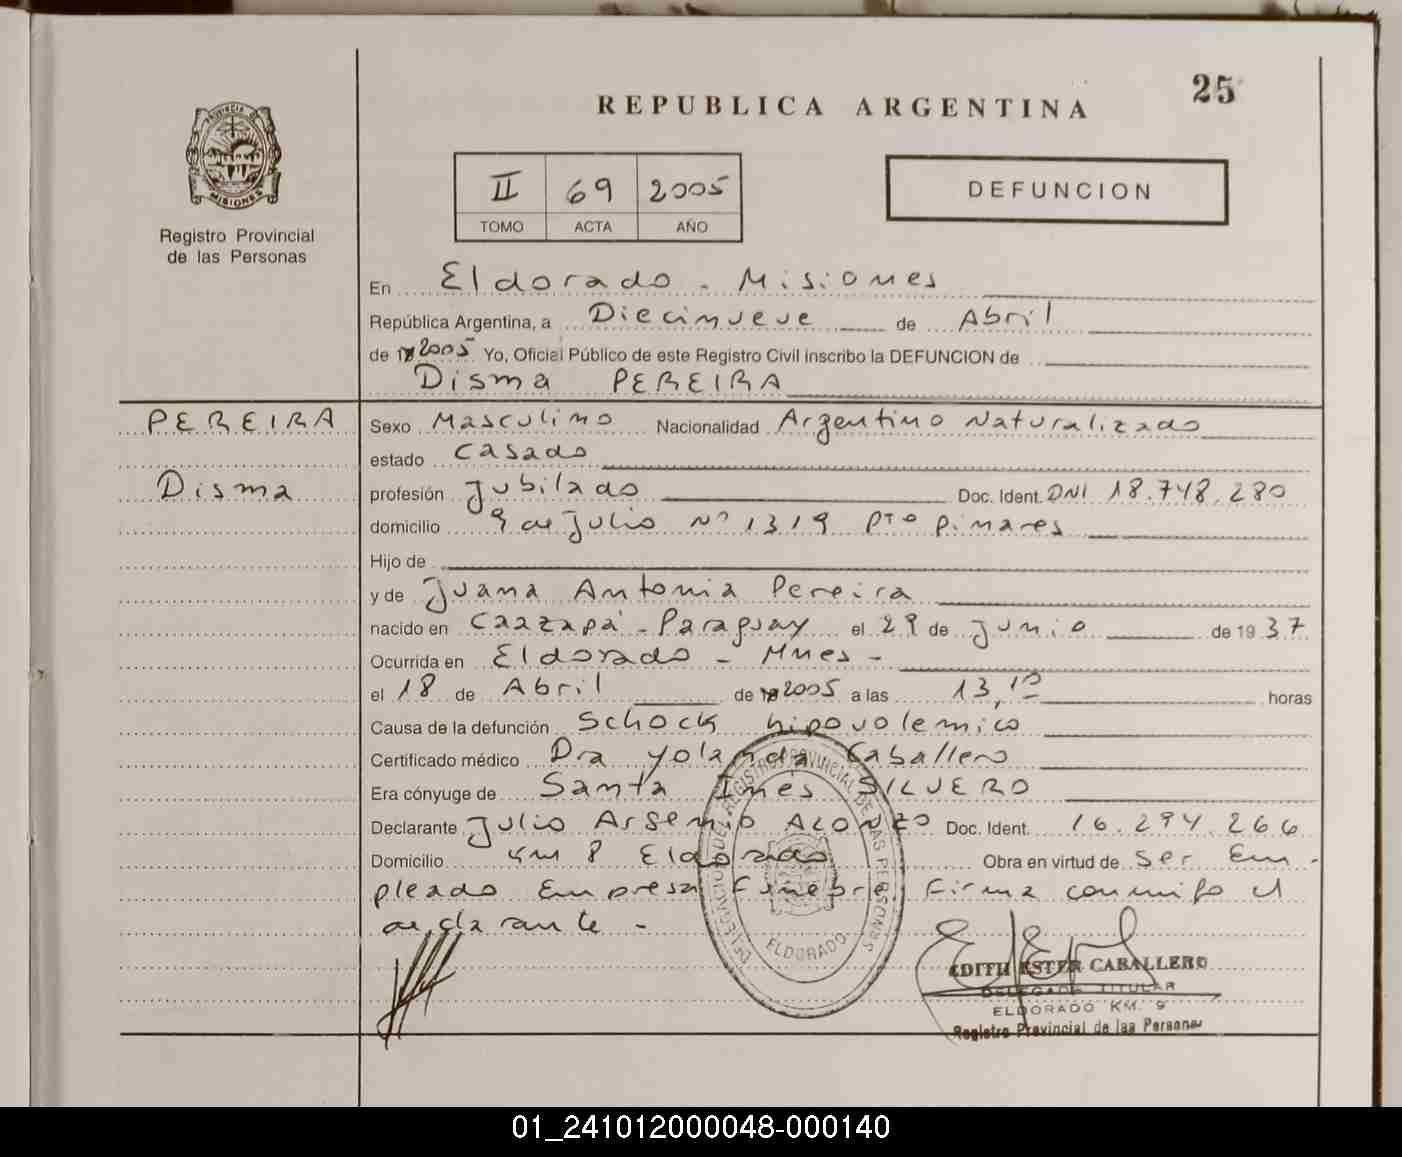 25
REPUBLICA ARGENTINA
MISIONES
Registro Provincial
de las Personas
II 69 2005
TOMO ACTA AÑO
DEFUNCION
En Eldorado - Misiones
República Argentina, a Diecinueve de Abril
de 2005 Yo, Oficial Público de este Registro Civil inscribo la DEFUNCION de
Disma PEREIRA
PEREIRA
Disma
Sexo Masculino Nacionalidad Argentino Naturalizado
estado Casado
profesión Jubilado Doc. Ident. DNI 18.748.280
domicilio 9 de Julio Nº 1319 Pto Pinares
Hijo de
y de Juana Antonia Pereira
nacido en Caazapá - Paraguay el 29 de Junio de 1937
Ocurrida en Eldorado - Mnes -
el 18 de Abril de 2005 a las 13,10 horas
Causa de la defunción Schock hipovolemico
Certificado médico Dra Yolanda Caballero
Era cónyuge de Santa Ines SILVERO
Declarante Julio Arsenio ALONZO Doc. Ident. 16.294.266
Domicilio Km 8 Eldorado Obra en virtud de ser Em-
pleado Empresa Funebre. Firma conmigo el
declarante -
DELEGACION DEL REGISTRO PROVINCIAL DE LAS PERSONAS
ELDORADO
EDITH ESTER CABALLERO
DELEGADA TITULAR
ELDORADO KM. 9
Registro Provincial de las Personas
01_241012000048-000140